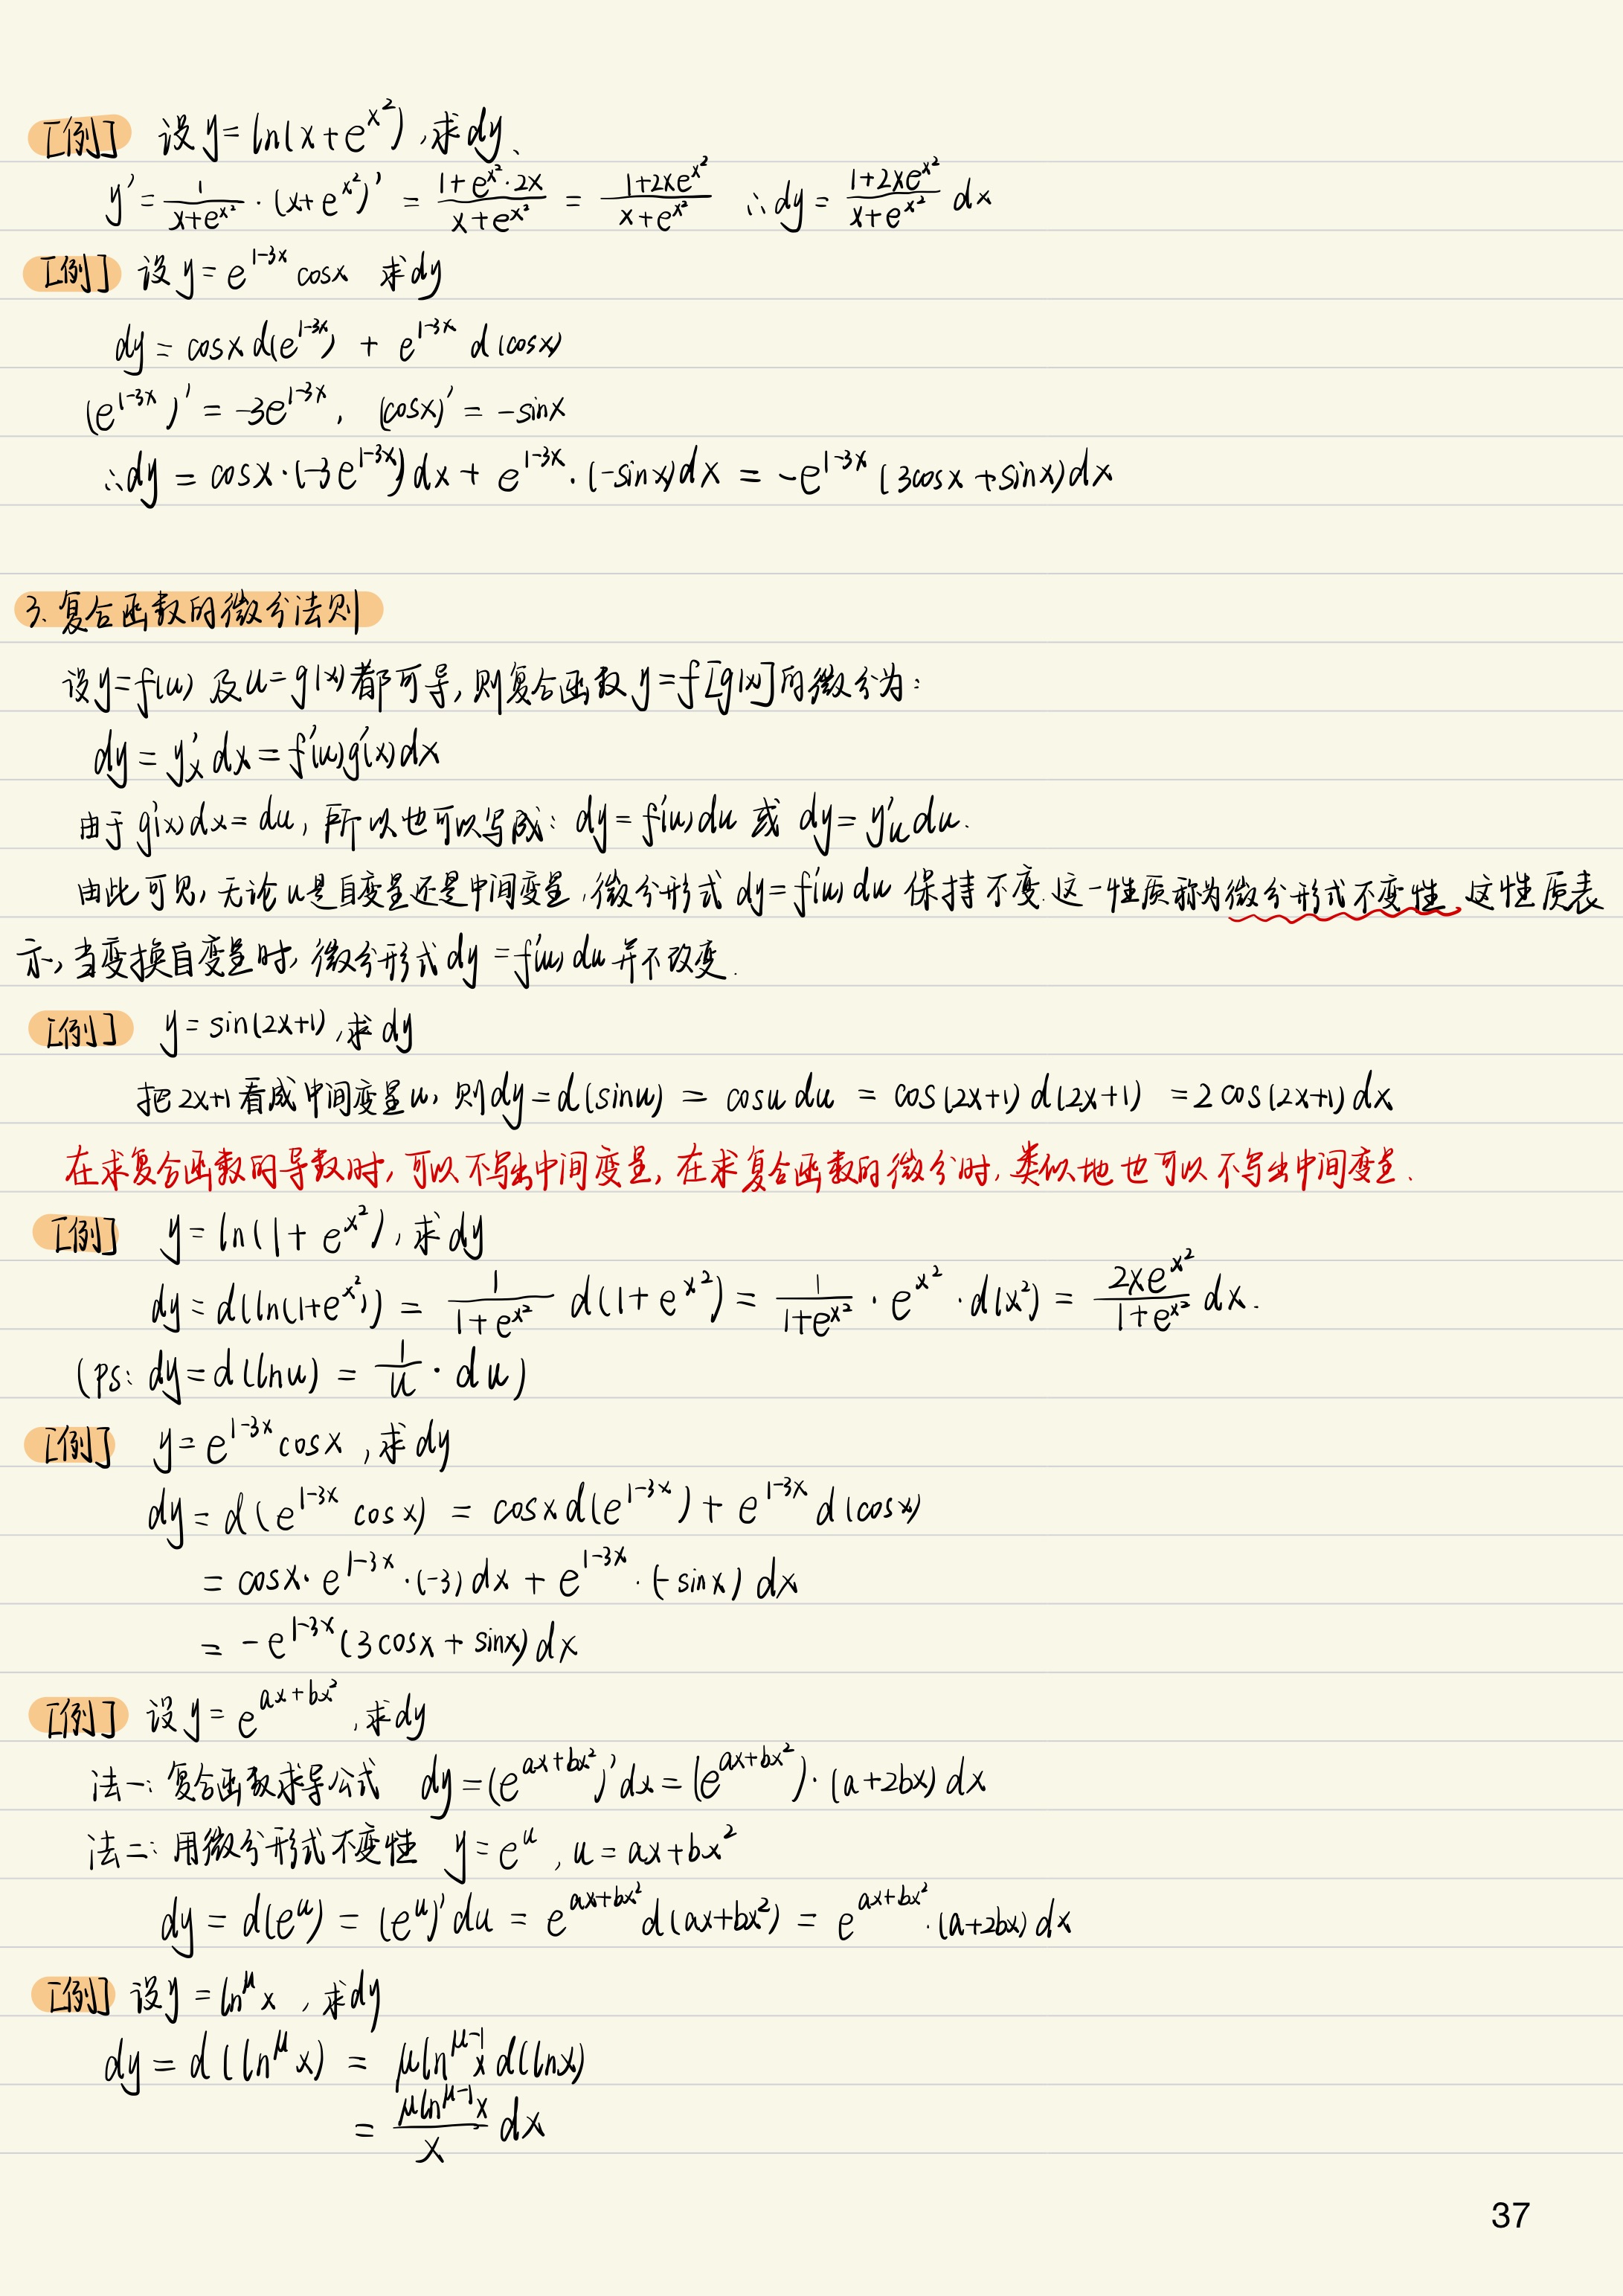 [例] 设 y = ln(x+e^{x²}), 求dy、
y' = \frac{1}{x+e^{x²}} · (x+e^{x²})' = \frac{1+e^{x²}·2x}{x+e^{x²}} = \frac{1+2xe^{x²}}{x+e^{x²}} ∴dy = \frac{1+2xe^{x²}}{x+e^{x²}} dx
[例] 设 y = e^{1-3x} cosx 求dy
dy = cosx d(e^{1-3x}) + e^{1-3x} d(cosx)
(e^{1-3x})' = -3e^{1-3x}, (cosx)' = -sinx
∴dy = cosx·(-3e^{1-3x})dx + e^{1-3x}·(-sinx)dx = -e^{1-3x}(3cosx+sinx)dx
3. 复合函数的微分法则
设y=f(u) 及u=g(x)都可导, 则复合函数y=f[g(x)]的微分为:
dy = y'ₓ dx = f'(u)g'(x)dx
由于 g'(x)dx = du, 所以也可以写成: dy = f'(u)du 或 dy = y'ᵤdu.
由此可见, 无论u是自变量还是中间变量, 微分形式 dy=f'(u)du 保持不变. 这一性质称为微分形式不变性 这性质表
示, 当变换自变量时, 微分形式dy=f'(u)du并不改变.
[例] y = sin(2x+1), 求dy
把2x+1看成中间变量u, 则dy = d(sinu) = cosu du = cos(2x+1) d(2x+1) = 2cos(2x+1)dx
在求复合函数的导数时, 可以不写出中间变量, 在求复合函数的微分时, 类似地也可以不写出中间变量.
[例] y = ln(1+e^{x²}), 求dy
dy = d(ln(1+e^{x²})) = \frac{1}{1+e^{x²}} d(1+e^{x²}) = \frac{1}{1+e^{x²}} · e^{x²} · d(x²) = \frac{2xe^{x²}}{1+e^{x²}} dx.
(ps: dy = d(lnu) = \frac{1}{u} · du)
[例] y = e^{1-3x}cosx, 求dy
dy = d(e^{1-3x} cosx) = cosx d(e^{1-3x}) + e^{1-3x} d(cosx)
= cosx·e^{1-3x}·(-3)dx + e^{1-3x}·(-sinx)dx
= -e^{1-3x}(3cosx+sinx)dx
[例] 设y = e^{ax+bx²}, 求dy
法一: 复合函数求导公式 dy = (e^{ax+bx²})'dx = (e^{ax+bx²})·(a+2bx)dx
法二: 用微分形式不变性 y = e^u, u = ax+bx²
dy = d(e^u) = (e^u)'du = e^{ax+bx²}d(ax+bx²) = e^{ax+bx²}·(a+2bx)dx
[例] 设y = ln^μ x, 求dy
dy = d(ln^μ x) = μln^{μ-1}x d(lnx)
= \frac{μln^{μ-1}x}{x} dx
37